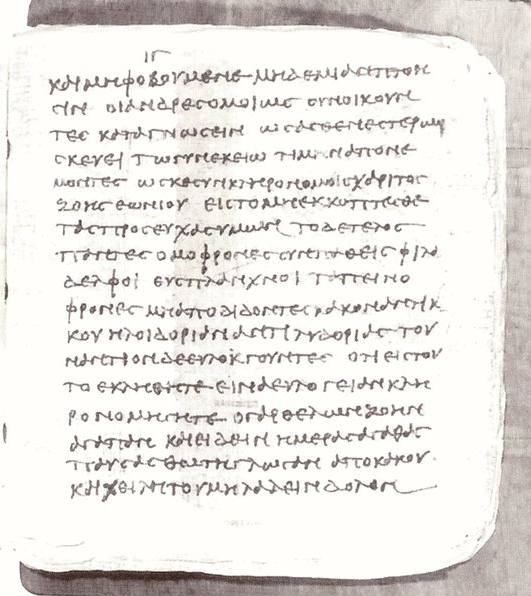 ιγ
και μη φοβουμενε μηδεμιαν πτοη
σιν οι ανδρες ομοιως συνοικουν
τες κατα γνωσειν ως ασθενεστερω
σκευει τω γυνεκειω τιμην απονε
μοντες ως κε συνκληρονομοις χαριτος
ζωης εωνιου εις το μη εκκοπτεσθε
τας προσευχας υμων το δε τελος
παντες ομοφρονες συνπαθεις φιλα
δελφοι ευσπλανχνοι ταπεινο
φρονες μη αποδιδοντες κακον αντι κα
κου η λοιδοριαν αντι λυδοριας του
ναντιον δε ευλοκγουντες οτι εις του
το εκληθητε εινα ευλογειαν κλη
ρονομησητε ο γαρ θελων ζωην
αγαπαν και ειδειν ημερας αγαθας
παυσασθω την γλωσαν απο κακου
και χειλη του μη λαλειν δολον